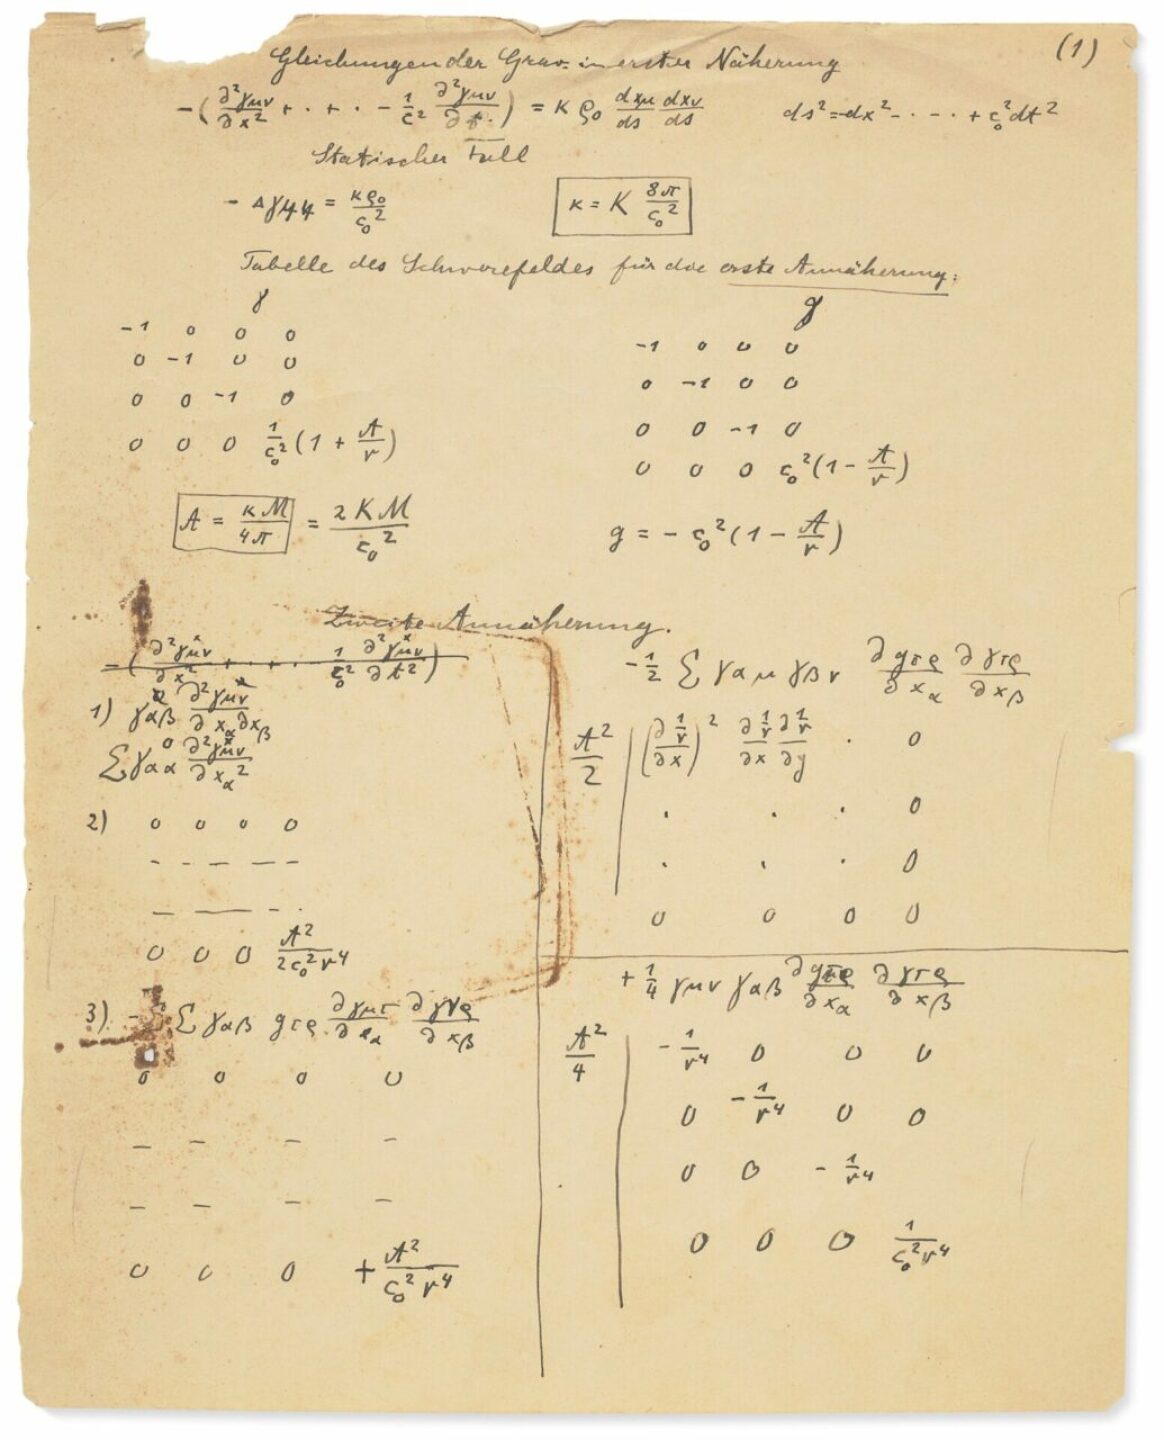 (1)
Gleichungen der Grav. in erster Näherung
−(∂²γμν/∂x² + · + · − 1/c² ∂²γμν/∂t²) = κ ρ₀ dxμ/ds dxν/ds    ds² = −dx² − · − · + c₀² dt²
Statischer Fall
− Δγ44 = κρ₀/c₀²    κ = K 8π/c₀²
Tabelle des Schwerefeldes für die erste Annäherung:
γ    g
−1 0 0 0    −1 0 0 0
0 −1 0 0    0 −1 0 0
0 0 −1 0    0 0 −1 0
0 0 0 1/c₀² (1 + A/r)    0 0 0 c₀² (1 − A/r)
A = κM/4π = 2KM/c₀²    g = − c₀² (1 − A/r)
Zweite Annäherung.
−(∂²γ̽μν/∂x² + · + · 1/c₀² ∂²γ̽μν/∂t²)
1) γαβ ∂²γμν/∂xα∂xβ
Σ γαα ∂²γ̽μν/∂xα²
2) 0 0 0 0
− − − − −
− — — − ·
0 0 0 A²/2c₀²r⁴
3) − Σ γαβ gτρ ∂γμτ/∂xα ∂γνρ/∂xβ
0 0 0 0
− − − −
− − − −
0 0 0 + A²/c₀²r⁴
−1/2 Σ γαμ γβν ∂gτρ/∂xα ∂γτρ/∂xβ
A²/2 | (∂(1/r)/∂x)² ∂(1/r)/∂x ∂(1/r)/∂y · 0
· · · 0
· · · 0
0 0 0 0
+ 1/4 γμν γαβ ∂gτρ/∂xα ∂γτρ/∂xβ
A²/4 | −1/r⁴ 0 0 0
0 −1/r⁴ 0 0
0 0 −1/r⁴
0 0 0 1/c₀²r⁴